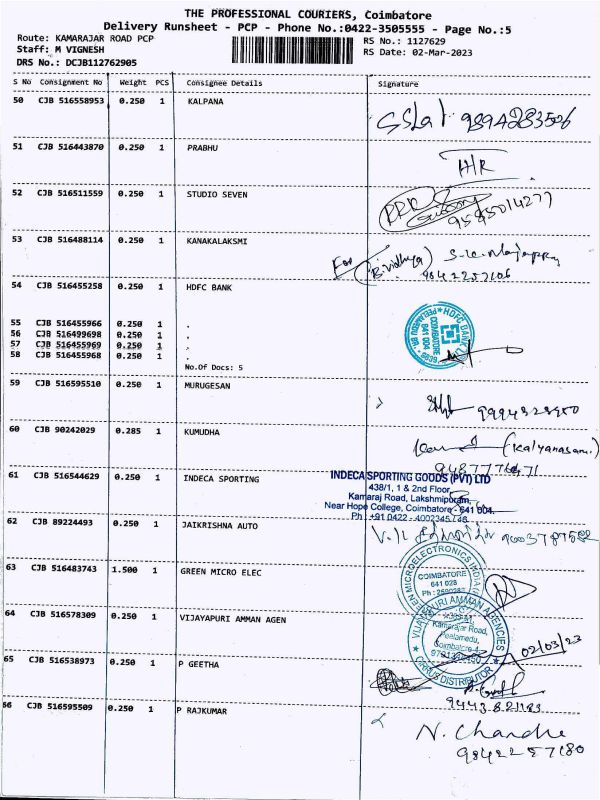 THE PROFESSIONAL COURIERS, Coimbatore
Delivery Runsheet - PCP - Phone No.:0422-3505555 - Page No.:5
Route: KAMARAJAR ROAD PCP
RS No.: 1127629
Staff: M VIGNESH
RS Date: 02-Mar-2023
DRS No.: DCJB112762905
S No Consignment No Weight PCS Consignee Details Signature
50 CJB 516558953 0.250 1 KALPANA
51 CJB 516443870 0.250 1 PRABHU
H/R
52 CJB 516511559 0.250 1 STUDIO SEVEN
53 CJB 516488114 0.250 1 KANAKALAKSMI
For (R.vidhya)
54 CJB 516455258 0.250 1 HDFC BANK
HDFC BANK
COIMBATORE
641 004
55 CJB 516455966 0.250 1 .
56 CJB 516499698 0.250 1 .
57 CJB 516455969 0.250 1 .
58 CJB 516455968 0.250 1 .
No.Of Docs: 5
59 CJB 516595510 0.250 1 MURUGESAN
60 CJB 90242029 0.285 1 KUMUDHA
(Kalyanasami)
61 CJB 516544629 0.250 1 INDECA SPORTING
INDECA SPORTING GOODS (PVT) LTD
438/1, 1 & 2nd Floor,
Kamaraj Road, Lakshmipuram,
Near Hope College, Coimbatore - 641 004.
62 CJB 89224493 0.250 1 JAIKRISHNA AUTO
63 CJB 516483743 1.500 1 GREEN MICRO ELEC
COIMBATORE
641 028
64 CJB 516578309 0.250 1 VIJAYAPURI AMMAN AGEN
Kamarajar Road,
Peelamedu,
Coimbatore-4
02/03/23
65 CJB 516538973 0.250 1 P GEETHA
9443821183
66 CJB 516595509 0.250 1 P RAJKUMAR
N. Chandre
9842257180